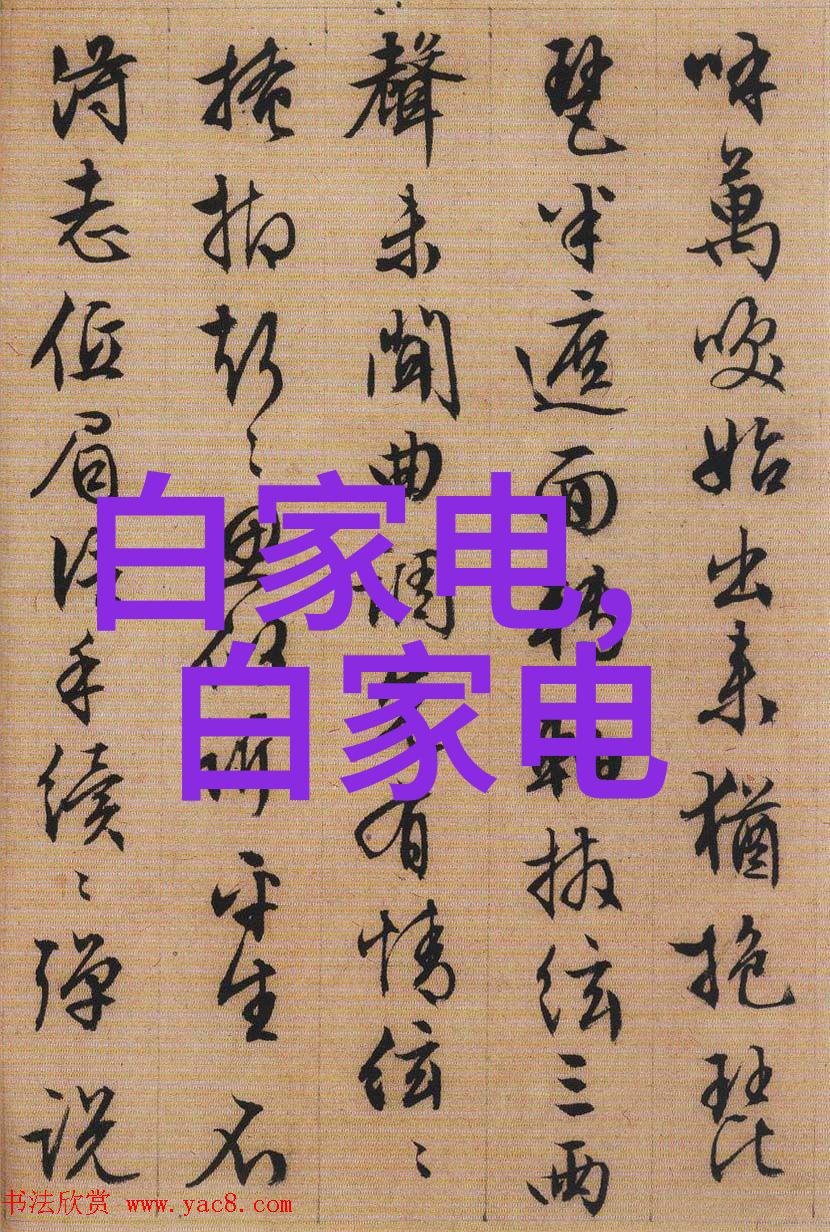 呼萬喚始出来猶抱琵
琶半遮面轉軸撥絃三两
聲未聞曲調有情絃〻
掩抑聲〻思似訴平生不
得志低眉信手續〻彈説
白家电,
白家电
书法欣赏 www.yac8.com